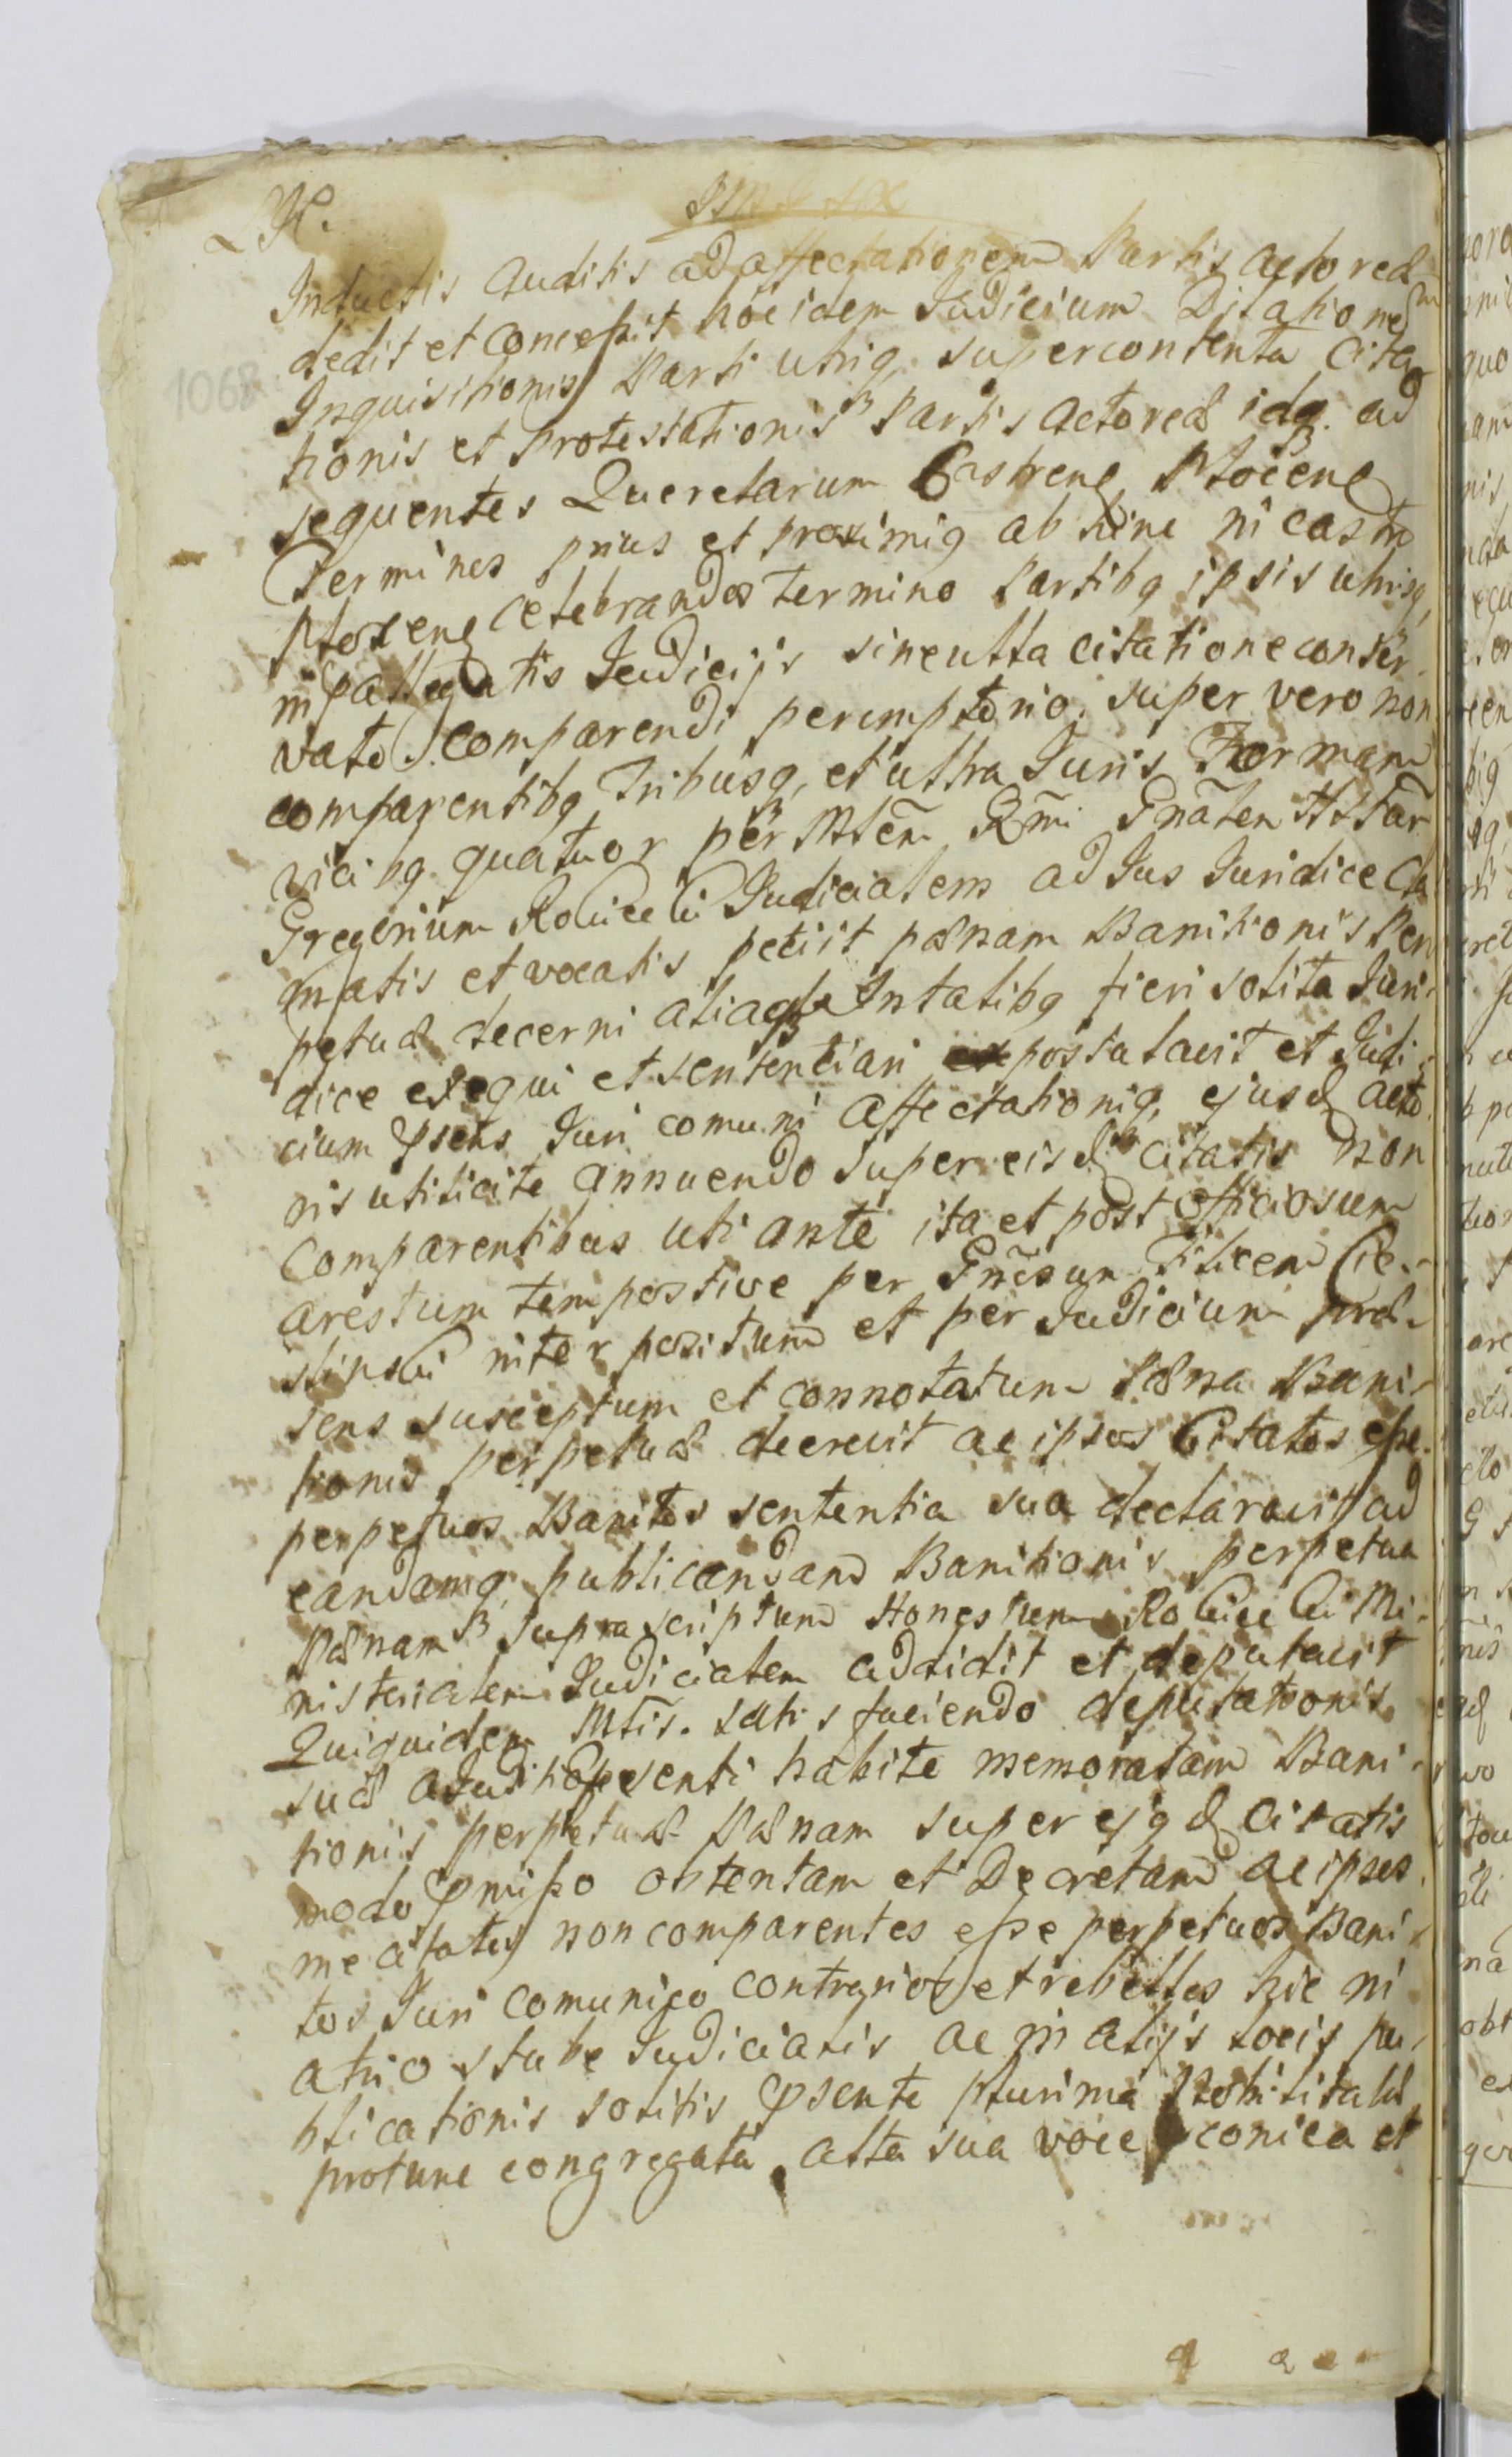 Inductis Auditis ad affectationem Partis actoreæ
dedit et concessit hoc idem Judicium Dilationem
Inquisitionis Parti utriq, super contenta Cita
tionis et Protestationis Partis actoreæ idq. ad
sequentes Querelarum Castrens Plocens
Terminos prius et proximiq ab hinc in Castro
Plocens celebrandos termino Partibq ipsis utrisq,
in pallegatis Judicijs sine ulla citatione conser
vato comparendi peremptorio. super vero non
comparentibq Tribusq, et ultra Juris Formam
vicibq quatuor per Mlem Rni Gnalem H Far
Gregorium Judicialem ad Jus Juridice Cla
matis et vocatis petiit pœnam Banitionis Per
petuæ decerni aliaq In talibq fieri solita Juri
dice exequi et sententiari postulavit et Judi
cium psens Juri comuni affectationiq, ejusd acto
ris uti licite annuendo super eisd citatis non
Comparentibus uti ante ita et post officiosum
arestum tempestive per Gnosum Ficem Cie
inter positum et per Judicium præ
sens susceptum et connotatum Pœna Bani
tionis perpetuæ decrevit ac ipsos Citatos esse
perpetuos Banitos sententia sua declaravit ad
eandamq, publicandam Banitionis perpetua
Pœnam supra scriptum Honestum Mi
nisterialem Judicialem addidit et deputavit
Quiquidem Mlis. satis faciendo deputationis
suæ a Judicio psenti habite memoratam Bani
tionis perpetuæ Pœnam super ejqd citatis
modo pmisso obtentam et Decretam ac ipsos
me citatos non comparentes esse perpetuos Bani
tos Juri comuniqo contrarios et rebelles hic in
atrio stube Judicialis ac in alijs locis pu
blicationis solitis psente plurima Nobilitate
protunc congregata alta sua voce conica et